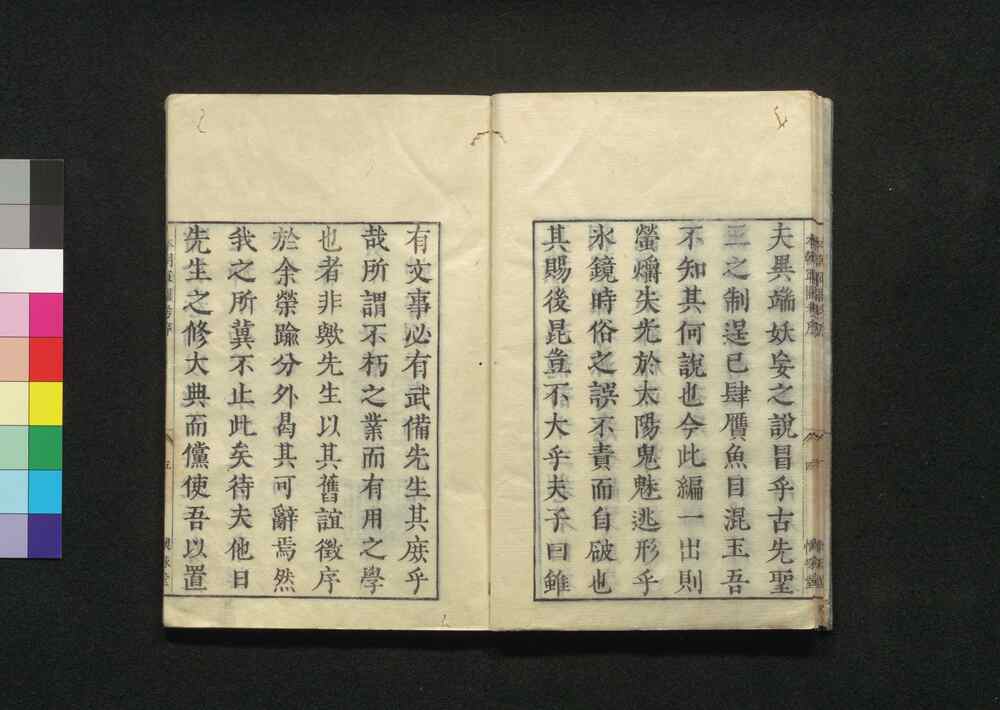 夫異端妖妄之說冒乎古先聖
王之制逞已肆贋魚目混玉吾
不知其何說也今此編一出則
螢爝失光於太陽鬼魅逃形乎
氷鏡時俗之誤不責而自破也
其賜後昆豈不大乎夫子曰雖
有文事必有武備先生其庶乎
哉所謂不朽之業而有用之學
也者非歟先生以其舊誼徵序
於余榮踰分外曷其可辭焉然
我之所冀不止此矣待夫他日
先生之修大典而儻使吾以置